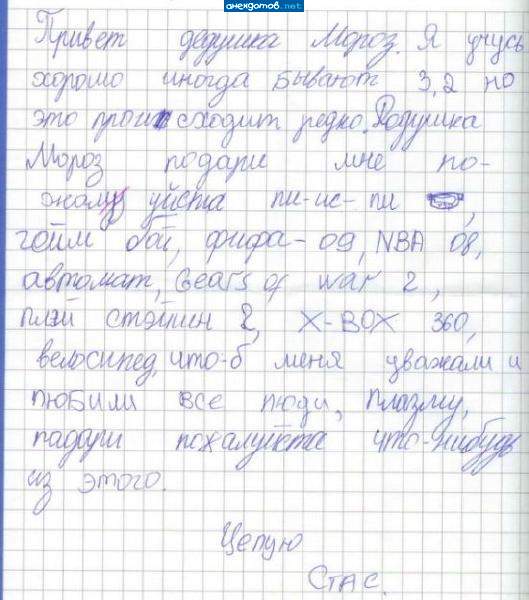 анекдотов.net
Привет дедушка Мороз. Я учусь
хорошо иногда бывают 3,2 но
это происходит редко. Дедушка
Мороз подари мне по-
жалуйста пи-ис-пи,
гейм бой, фифа-09, NBA 08,
автомат, Gears of war 2,
плэй стэйшин 2, X-BOX 360,
велосипед, что-б меня уважали и
любили все люди, плазму,
падари пожалуйста что-нибудь
из этого.
Целую
Стас.